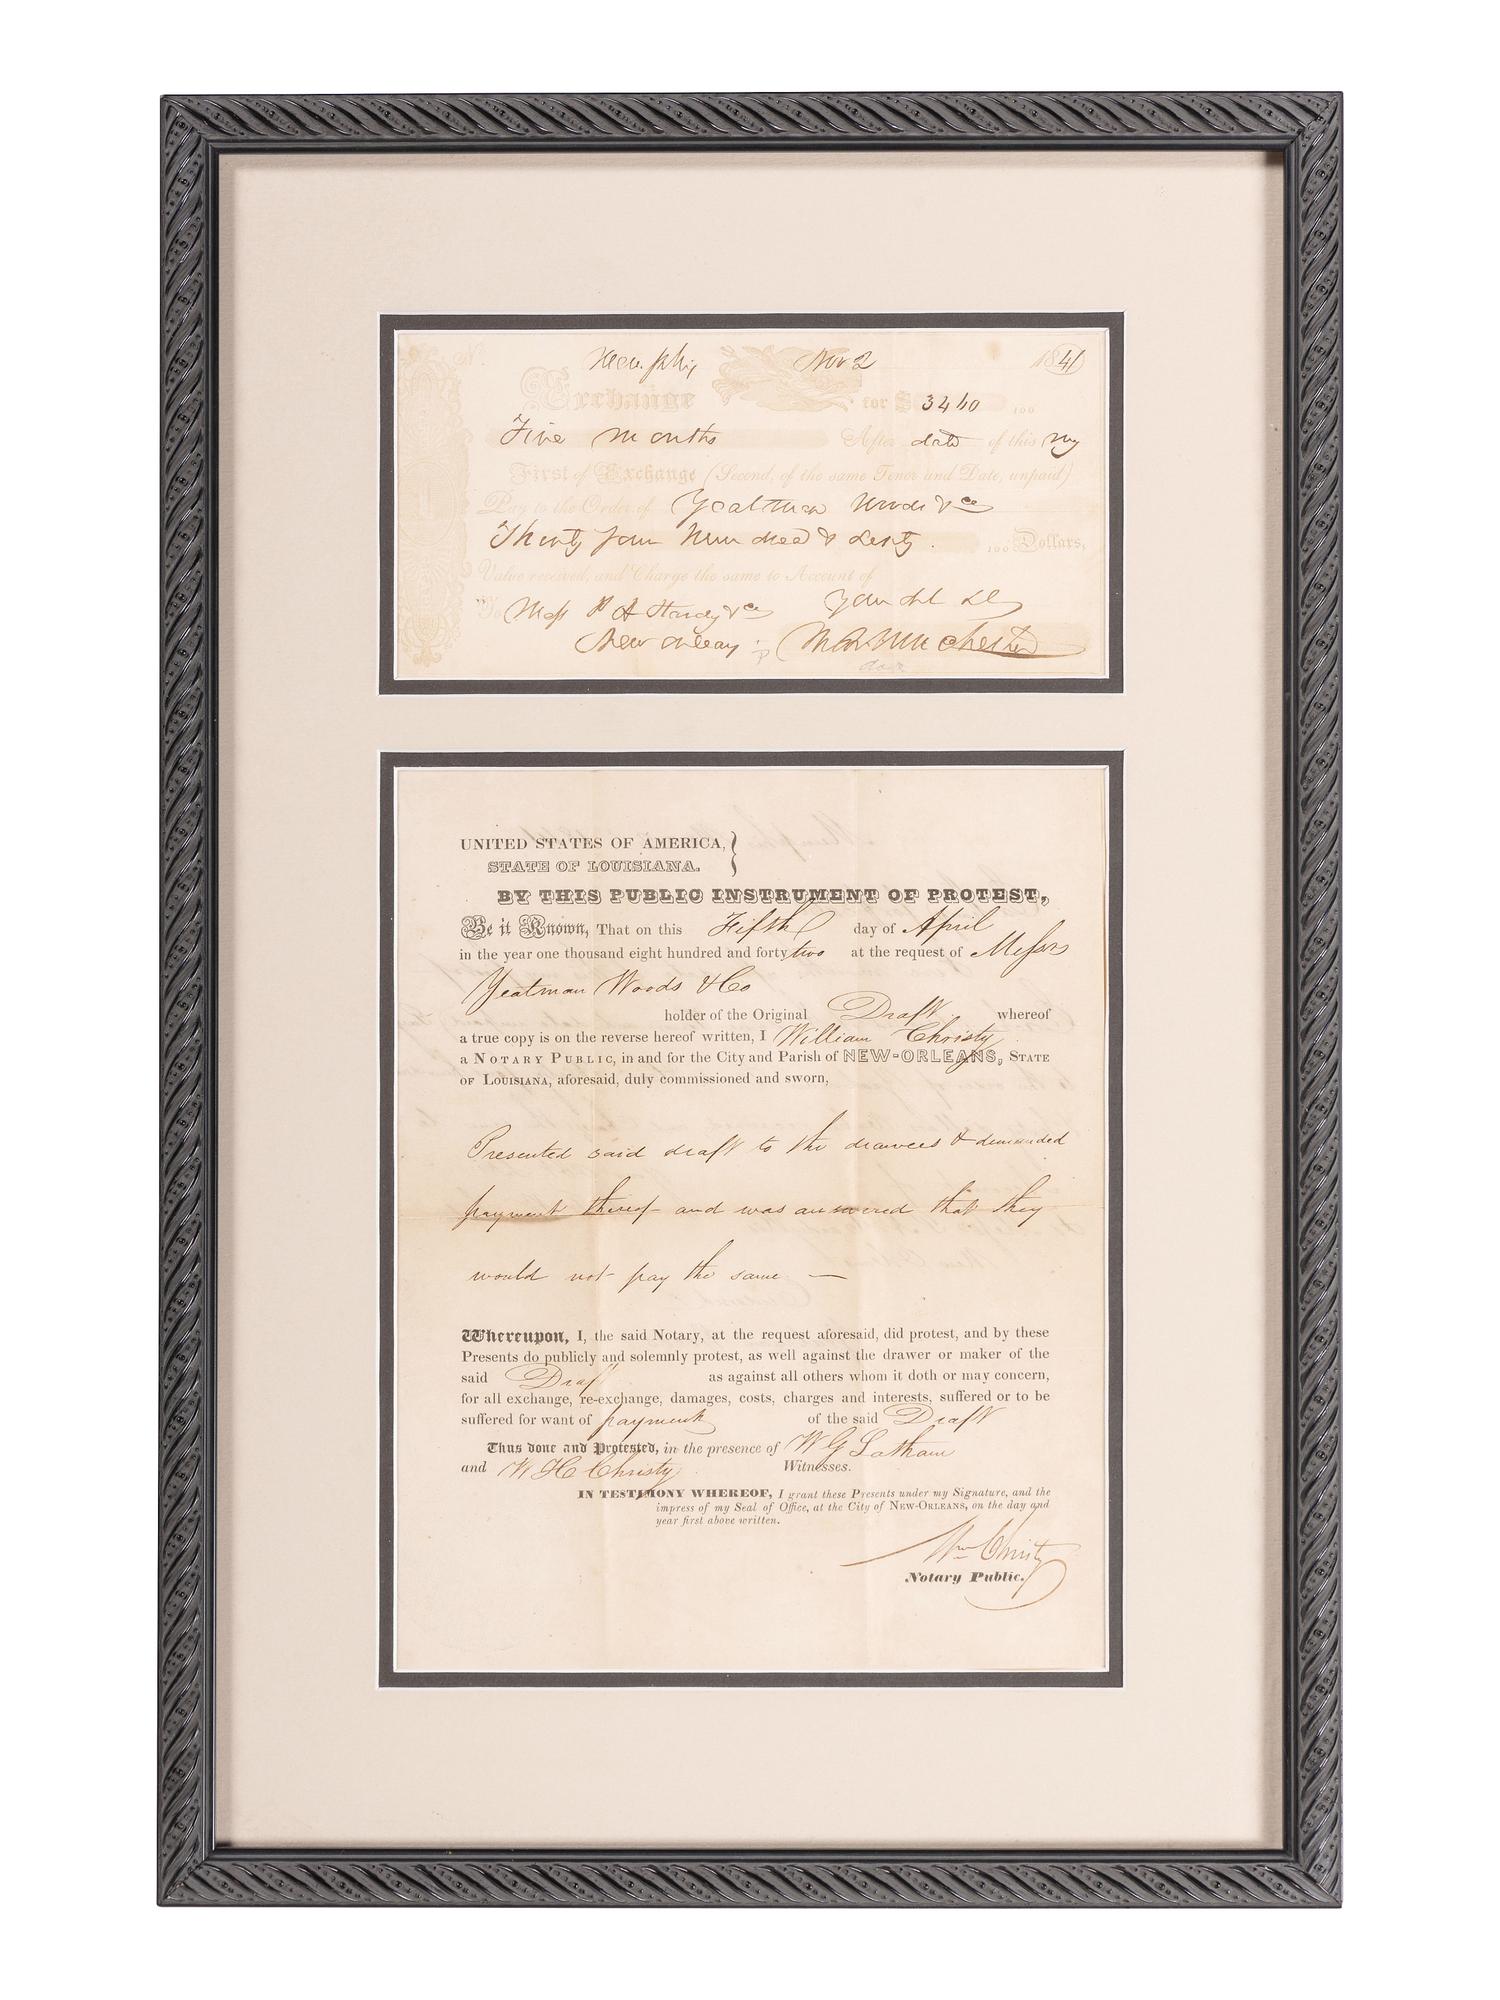 No. Memphis Nov 2 1841
Exchange for $ 3460 100
Five months After date of this my
First of Exchange (Second, of the same Tenor and Date, unpaid)
Pay to the Order of Yeatman Woods & Co
Thirty four Hundred & Sixty 100 Dollars,
Value received, and Charge the same to Account of
To Mess Hardy & Co Your Obt
New Orleans M B Winchester
UNITED STATES OF AMERICA,
STATE OF LOUISIANA.
BY THIS PUBLIC INSTRUMENT OF PROTEST,
Be it Known, That on this Fifth day of April
in the year one thousand eight hundred and forty two at the request of Messrs
Yeatman Woods & Co
holder of the Original Draft whereof
a true copy is on the reverse hereof written, I William Christy
a NOTARY PUBLIC, in and for the City and Parish of NEW-ORLEANS, STATE
OF LOUISIANA, aforesaid, duly commissioned and sworn,
Presented said draft to the drawees & demanded
payment thereof and was answered that they
would not pay the same —
Whereupon, I, the said Notary, at the request aforesaid, did protest, and by these
Presents do publicly and solemnly protest, as well against the drawer or maker of the
said Draft as against all others whom it doth or may concern,
for all exchange, re-exchange, damages, costs, charges and interests, suffered or to be
suffered for want of payment of the said Draft
Thus done and Protested, in the presence of W G Latham
and W H C Christy Witnesses.
IN TESTIMONY WHEREOF, I grant these Presents under my Signature, and the
impress of my Seal of Office, at the City of NEW-ORLEANS, on the day and
year first above written.
Wm Christy
Notary Public.